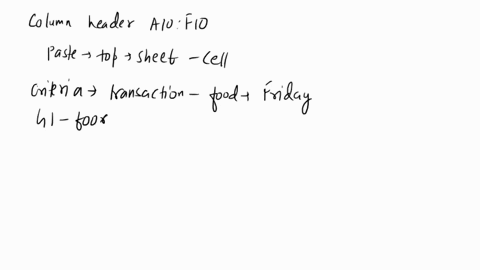 Column header A10:F10
Paste → top → sheet - cell
Criteria → transaction - food + Friday
G1 - foor